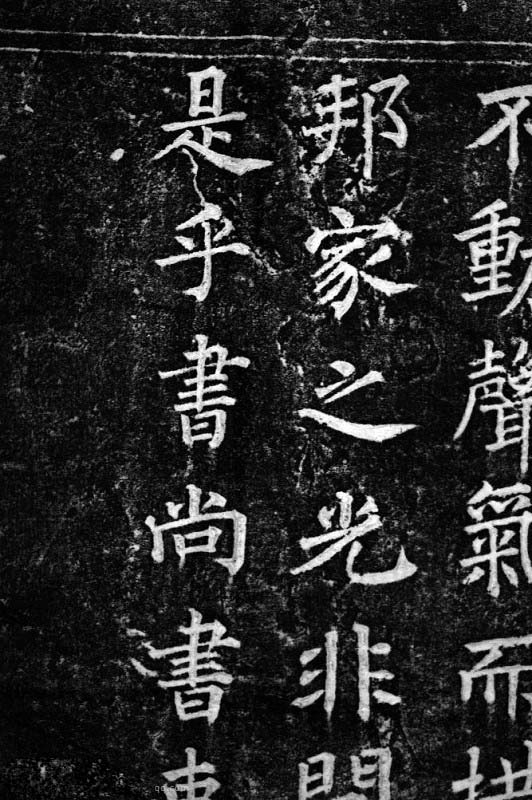 不動聲氣而措
邦家之光非閭
是乎書尚書吏